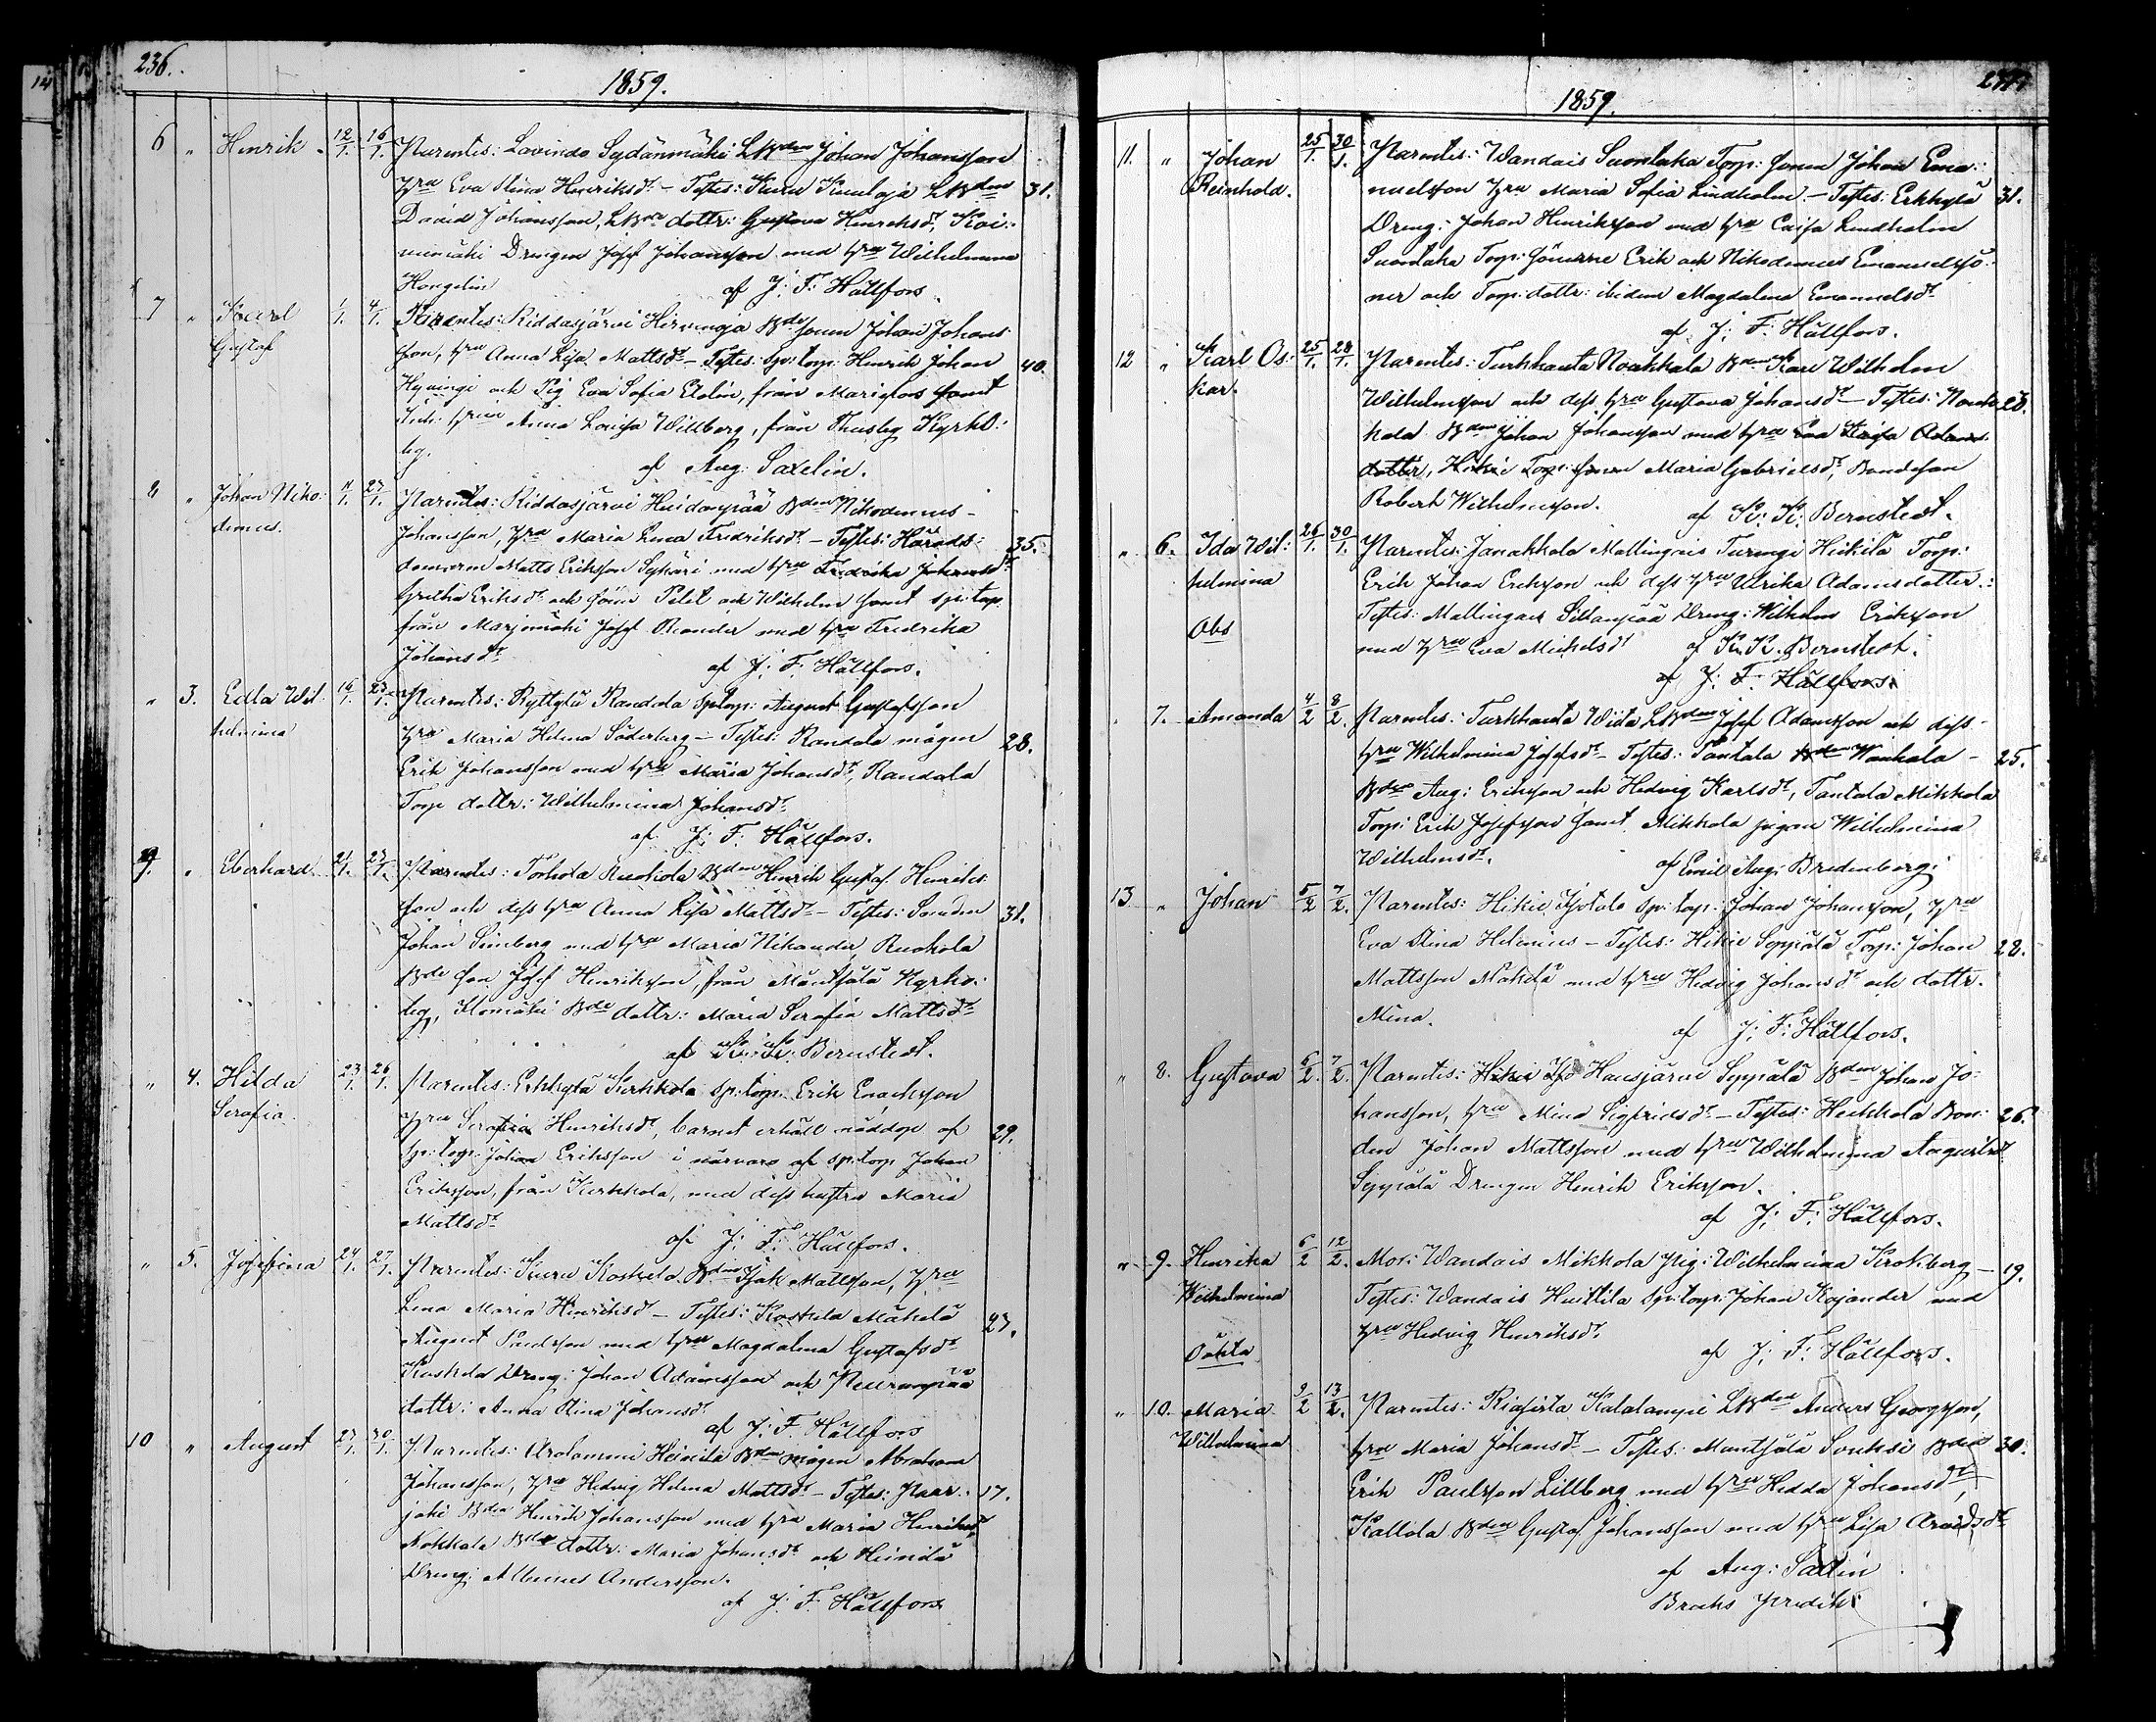 236.
1859.
6 " Henrik. 12/1. 16/1. Parentes: Lavinda Sydänmäki LBden Johan Johansson
hru Eva Stina Henriksdr – Testes: Kuru Knuloja LBden 31.
David Johansson, LBde dottr: Gustava Henriksdr,
Drengen Josef Johansson med hru Wilhelmina
Hongelin af J: F: Hällfors.
7 " Karl 1/1. 4/1. Parentes: Riddasjärvi Hirvinoja Bde sonen Johan Johans
Gustaf son, hru Anna Lisa Mattsdr – Testes: Sp: torp: Henrik Johan 40.
Hyvinge och Pig Eva Sofia Elolin, från Mariefors samt
hrun Anna Lovisa Willberg, från Thusby Kyrko:
by.
af Aug: Saxelin.
8 " Johan Niko: 11/1. 23/1. Parentes: Riddasjärvi Huidanpää Bden Nikodemus
demus. Johansson, hru Maria Lena Fredriksdr – Testes: Härads: 35.
domaren Matts Eriksson Sykäri med hru Fredrika Johansdr
Gretha Eriksdr och sönn Petit och Wilhelm samt sp: torp
från Marjomäki Josef Roander med hru Fredrika
Johansdr
af J: F: Hällfors.
" 3. Edla Wil: 16/1. 23/1. Parentes: Ryttylä Randala Sp: torp: August Gustafsson
helmina hru Maria Helena Söderberg – Testes: Randala mågen 28.
Erik Johansson med hru Maria Johansdr, Randala
Torp dottr: Wilhelmina Johansdr.
af J: F: Hällfors.
9. " Eberhard. 21/1. 23/1. Parentes: Torhola Ruokola Bden Henrik Gustaf Henriks
son och dess hru Anna Lisa Mattsdr – Testes: 31.
Johan Simberg med hru Maria Nikander, Ruokola
Bde son Josef Henriksson, från Mäntsälä Kyrko:
by, Bde dottr: Maria Serafia Mattsdr
af K: K: Bernstedt.
" 4. Hilda 23/1. 26/1. Parentes: Erkkylä Kerkkola Sp: torp: Erik Enochsson
Serafia. hru Serafia Henriksdr, barnet erhöll nöddop af 29.
Sp: torp: Johan Eriksson i närvaro af sp: torp Johan
Eriksson, från Kerkkola, med dess hustru Maria
Mattsdr
af J: F: Hällfors.
" 5. Josefina 24/1. 27/1. Parentes: Kuru Koskela Bden Isak Mattsson, hru
Lena Maria Henriksdr – Testes: Koskela Mäkelä 27.
August Paulsson med hru Magdalena Gustafsdr
Koskela Dreng: Johan Adamsson och Neuvanpää
dottr: Anna Stina Johansdr
af J: F: Hällfors
10 " August 27/1. 30/1. Parentes: Arolammi Heinilä Bden mågen Abraham
Johansson, hru Hedvig Helena Mattsdr – Testes: Haar: 17.
joki Bden Henrik Johansson med hru Maria Henriksdr
Nokkala Bde dottr: Maria Johansdr och Heinilä
Dreng: Andersson.
af J: F: Hällfors
1859.
11. " Johan 25/1. 30/1. Parentes: Wandais Suontaka Torp: sonen Johan Ema:
Reinhold. nuelsson hru Maria Sofia Lindholm. – Testes: Erkkylä 31.
Dreng: Johan Henriksson med hru Caisa Lindholm
Suontaka Torp: sönerne Erik och Nikodemus Emanuelssö:
ner och Torp: dottr: ibidem Magdalena Emanuelsdr
af J: F: Hällfors.
12 " Karl Os: 25/1. 28/1. Parentes: Turkhauta Noukkala Bden Karl Wilhelm
kar. Wilhelmsson och dess hru Gustava Johansdr – Testes: Nouk 28.
kala Bden Johan Johansson med hru Eva Kaisa Adams
dotter, Hikiä Torp: sonen Maria Gabrielsdr, Bondeson
Robert Wilhelmsson. af K: K: Bernstedt.
" 6. Ida Wil: 26/1. 30/1. Parentes: Janakkala Mallingais Turengi Heikilä Torp:
helmina Erik Johan Eriksson och dess hru Ulrika Adamsdotter.:
Obs Testes: Mallingais Sillanpää Dreng: Wilhelm Eriksson
med hru Eva Michelsdr af K. K. Bernstedt.
af J: F: Hällfors.
" 7. Amanda 4/2 8/2. Parentes: Turkhauta Wiita LBden Josef Adamsson och dess
hru Wilhelmina Josefsdr – Testes: Tantala Bden Wanhala – 25.
Bden Aug: Eriksson och Hedvig Karlsdr, Tantala Mikkola
Torp: Erik Josefsson samt Mikkola pigan Wilhelmina
Wilhelmsdr. af Emil Aug: Bredenberg.
13 " Johan 5/2 7/2. Parentes: Hikiä Isotalo Sp: torp: Johan Johansson, hru
Eva Stina Helenius – Testes: Hikiä Seppälä Torp: Johan 28.
Mattsson Mäkelä med hru Hedvig Johansdr och dottr.
Mina.
af J: F: Hällfors.
" 8. Gustava 6/2. 7/2. Parentes: Hikiä Iso Hausjärvi Seppälä Bden Johan Jo:
hansson, hru Mina Sigfridsdr – Testes: Heikkola Bon: 26.
den Johan Mattsson med hru Wilhelmina Augustsdr
Seppälä Drengen Henrik Eriksson.
af J: F: Hällfors.
" 9. Henrika 6/2 12/2. Mor: Wandais Mikkola Pig: Wilhelmina Krokberg – 19.
Wilhelmina Testes: Wandais Huittila Sp: torp: Johan Kojander med
hru Hedvig Henriksdr.
Oäkta af J: F: Hällfors.
" 10. Maria 9/2 13/2. Parentes: Kalalampi LBden Anders Georgsson,
Wilhelmina hru Maria Johansdr – Testes: Mäntsälä Souksi Bden 30.
Erik Paulsson Lillberg med hru Hedda Johansdr,
Kallola Bden Gustaf Johansson med hru Lisa Arvidsdr
af Aug: Saxelin